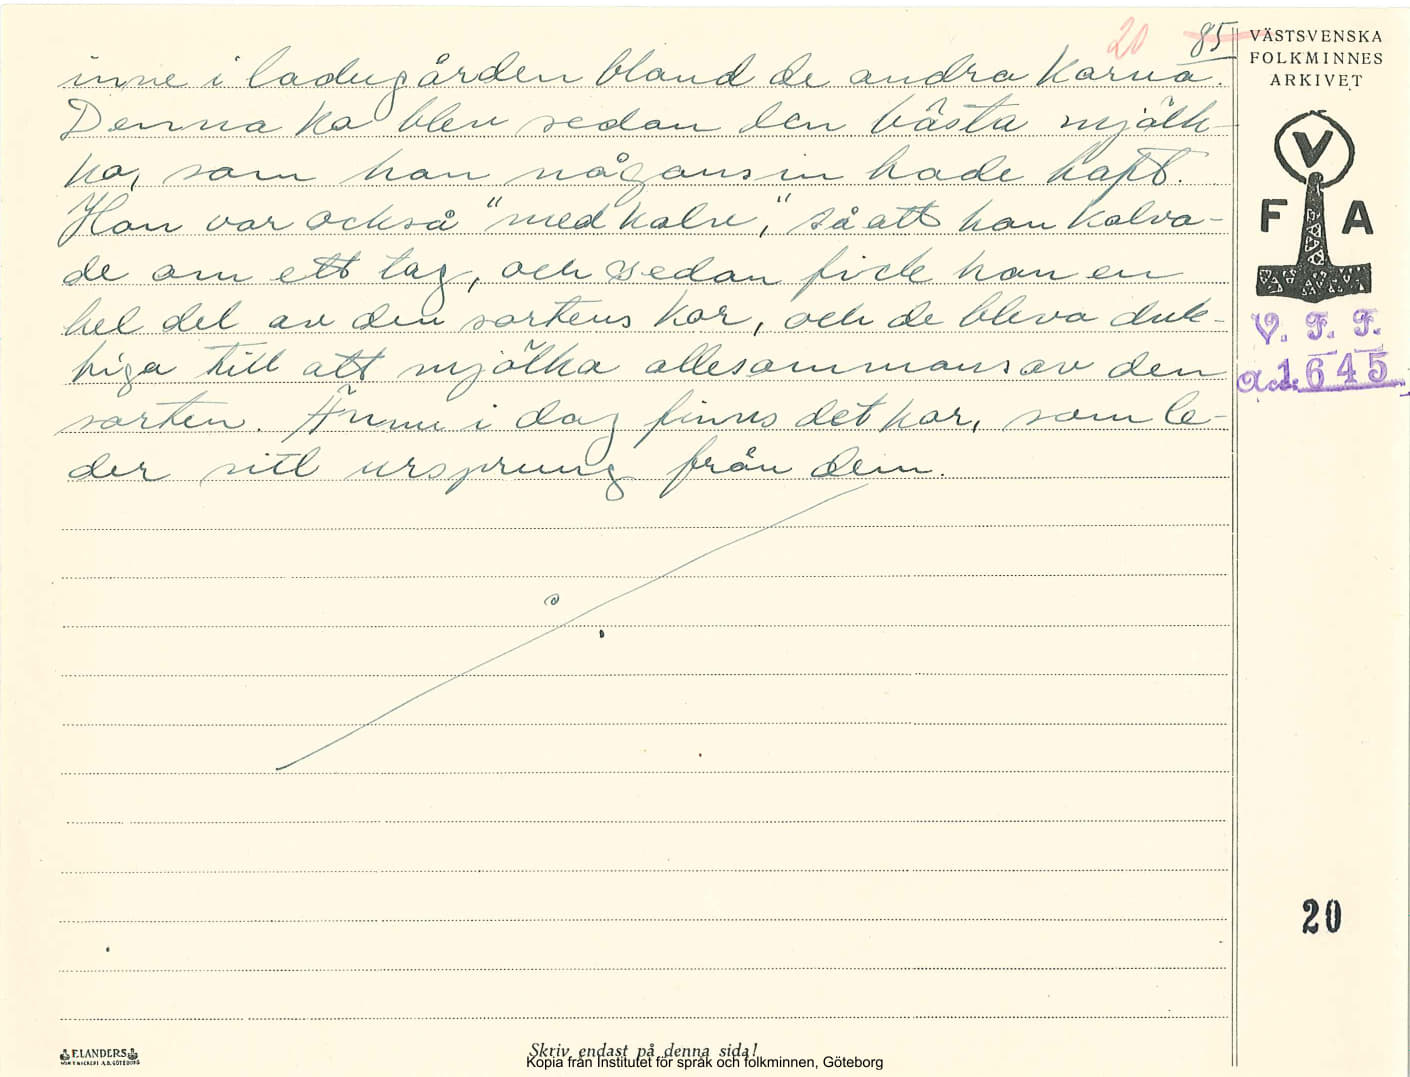 20 85
inne i ladugården bland de andra korna.
Denna ko blev sedan den bästa mjölk-
ko, som han någonsin hade haft.
Hon var också "med kalv," så att hon kalva-
de om ett tag, och sedan fick han en
hel del av den sortens kor, och de bleva duk-
tiga till att mjölka allesammans av den
sorten. Ännu i dag finns det kor, som le-
der sitt ursprung från dem.
VÄSTSVENSKA
FOLKMINNES
ARKIVET
V
F A
V. F. F.
1645
20
ELANDERS
Skriv endast på denna sida!
Kopia från Institutet för språk och folkminnen, Göteborg